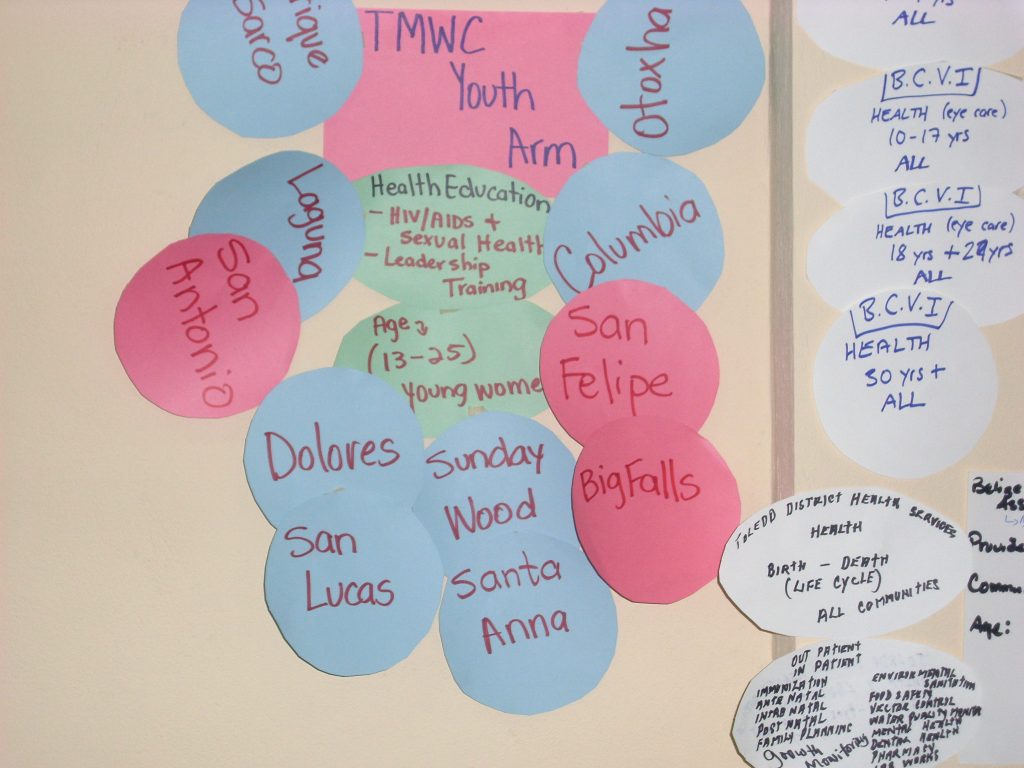 Sarco
TMWC
Youth
Arm
Otoxha
Laguna
Health Education
- HIV/AIDS +
Sexual Health
- Leadership
Training
Columbia
San
Antonio
Age
(13-25)
Young wome
San
Felipe
Dolores
Sunday
Wood
Big Falls
San
Lucas
Santa
Anna
ALL
B.C.V.I
HEALTH (eye care)
10-17 yrs
ALL
B.C.V.I
HEALTH (eye care)
18 yrs + 29yrs
ALL
B.C.V.I
HEALTH
30 yrs +
ALL
TOLEDO DISTRICT HEALTH SERVICES
HEALTH
BIRTH - DEATH
(LIFE CYCLE)
ALL COMMUNITIES
Age:
OUT PATIENT
IN PATIENT
IMMUNIZATION
ANTE NATAL
INTRA NATAL
POST NATAL
FAMILY PLANNING
Growth
Monitoring
ENVIRONMENTAL
SANITATION
FOOD SAFETY
VECTOR CONTROL
WATER QUALITY
MENTAL HEALTH
DENTAL HEALTH
PHARMACY
WORKS